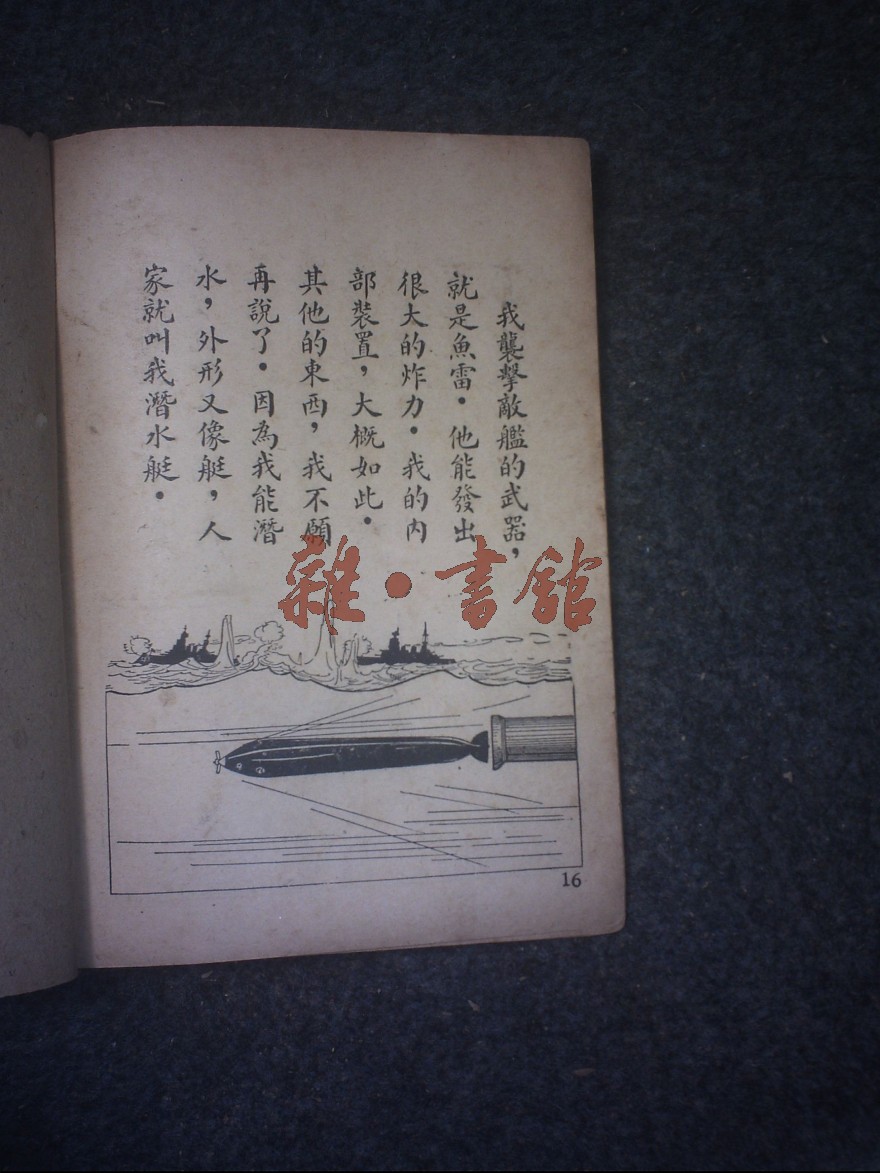 我襲擊敵艦的武器，
就是魚雷．他能發出
很大的炸力．我的內
部裝置，大概如此．
其他的東西，我不願
再說了．因為我能潛
水，外形又像艇，人
家就叫我潛水艇．
雜·書館
16